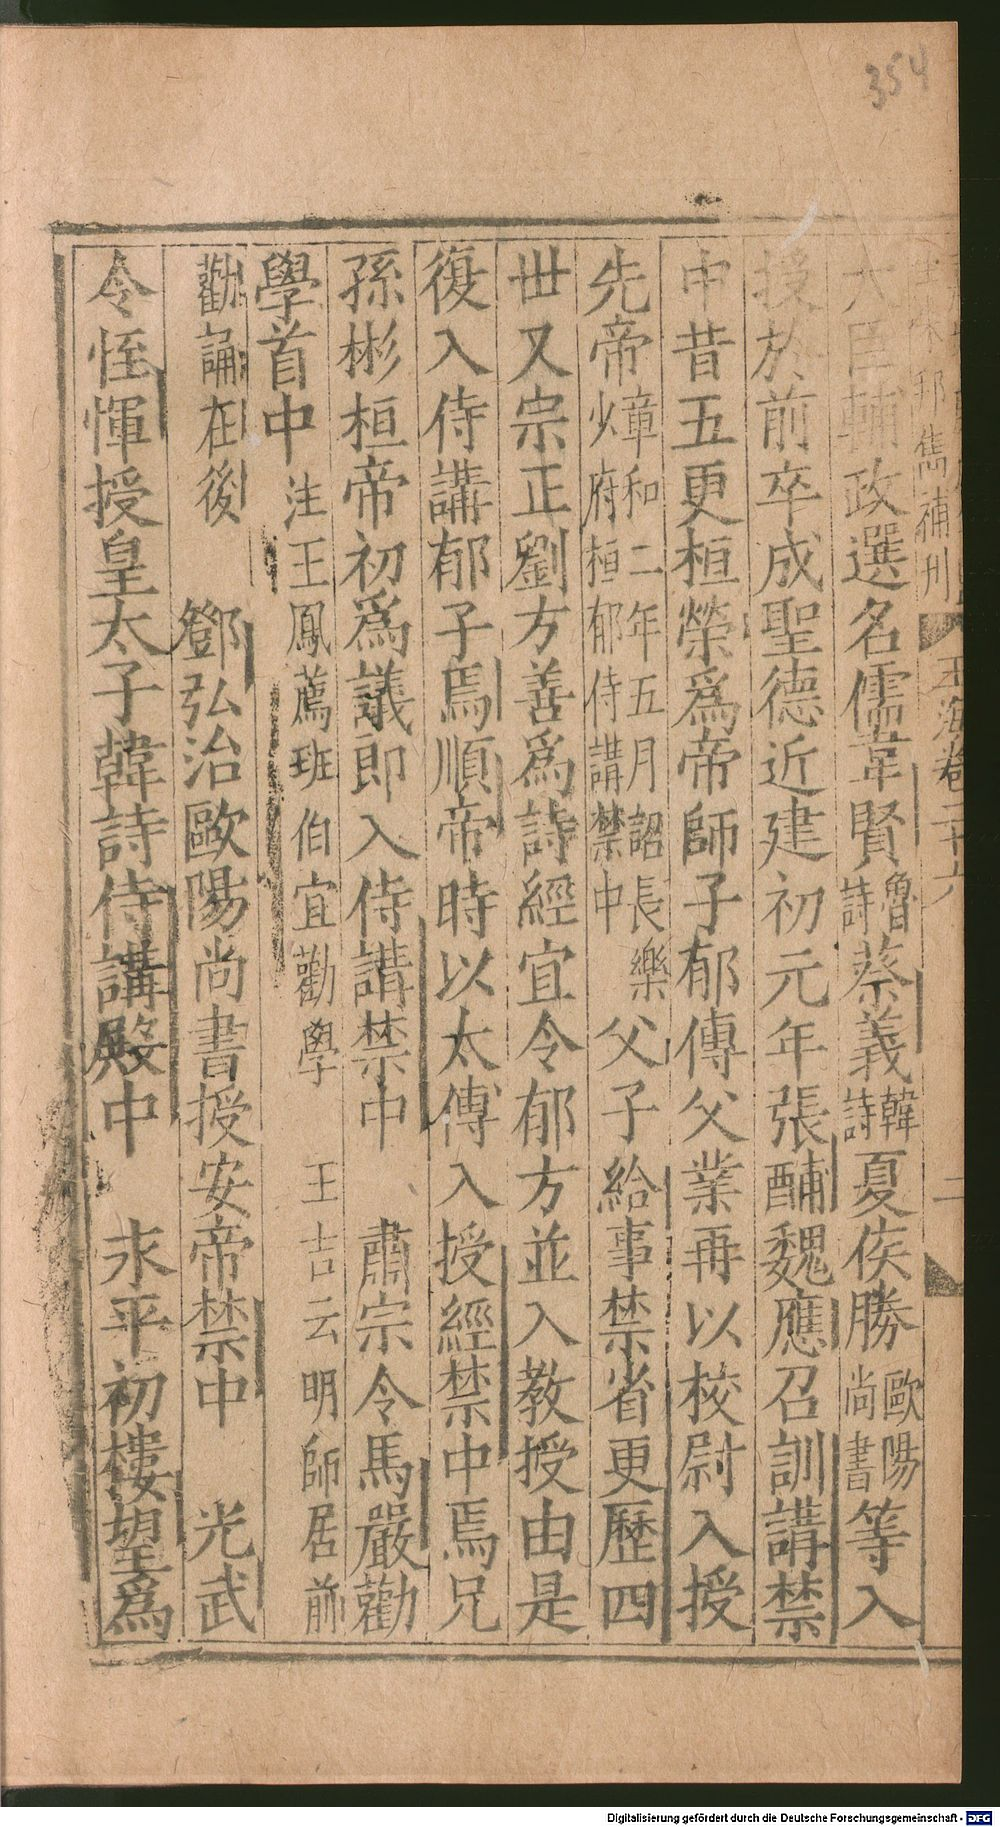 354
邦雋補刊
玉海卷二十六
二
大臣輔政選名儒韋賢魯詩蔡義韓詩夏侯勝歐陽尚書等入
授於前卒成聖德近建初元年張酺魏應召訓講禁
中昔五更桓榮爲帝師子郁傳父業再以校尉入授
先帝章和二年五月詔長樂少府桓郁侍講禁中父子給事禁省更歷四
世又宗正劉方善爲詩經宜令郁方並入教授由是
復入侍講郁子焉順帝時以太傅入授經禁中焉兄
孫彬桓帝初爲議郎入侍講禁中 肅宗令馬嚴勸
學首中注王鳳薦班伯宜勸學 王吉云明師居前
勸誦在後 鄧弘治歐陽尚書授安帝禁中 光武
令恠惲授皇太子韓詩侍講殿中 永平初樓望爲
Digitalisierung gefördert durch die Deutsche Forschungsgemeinschaft - DFG